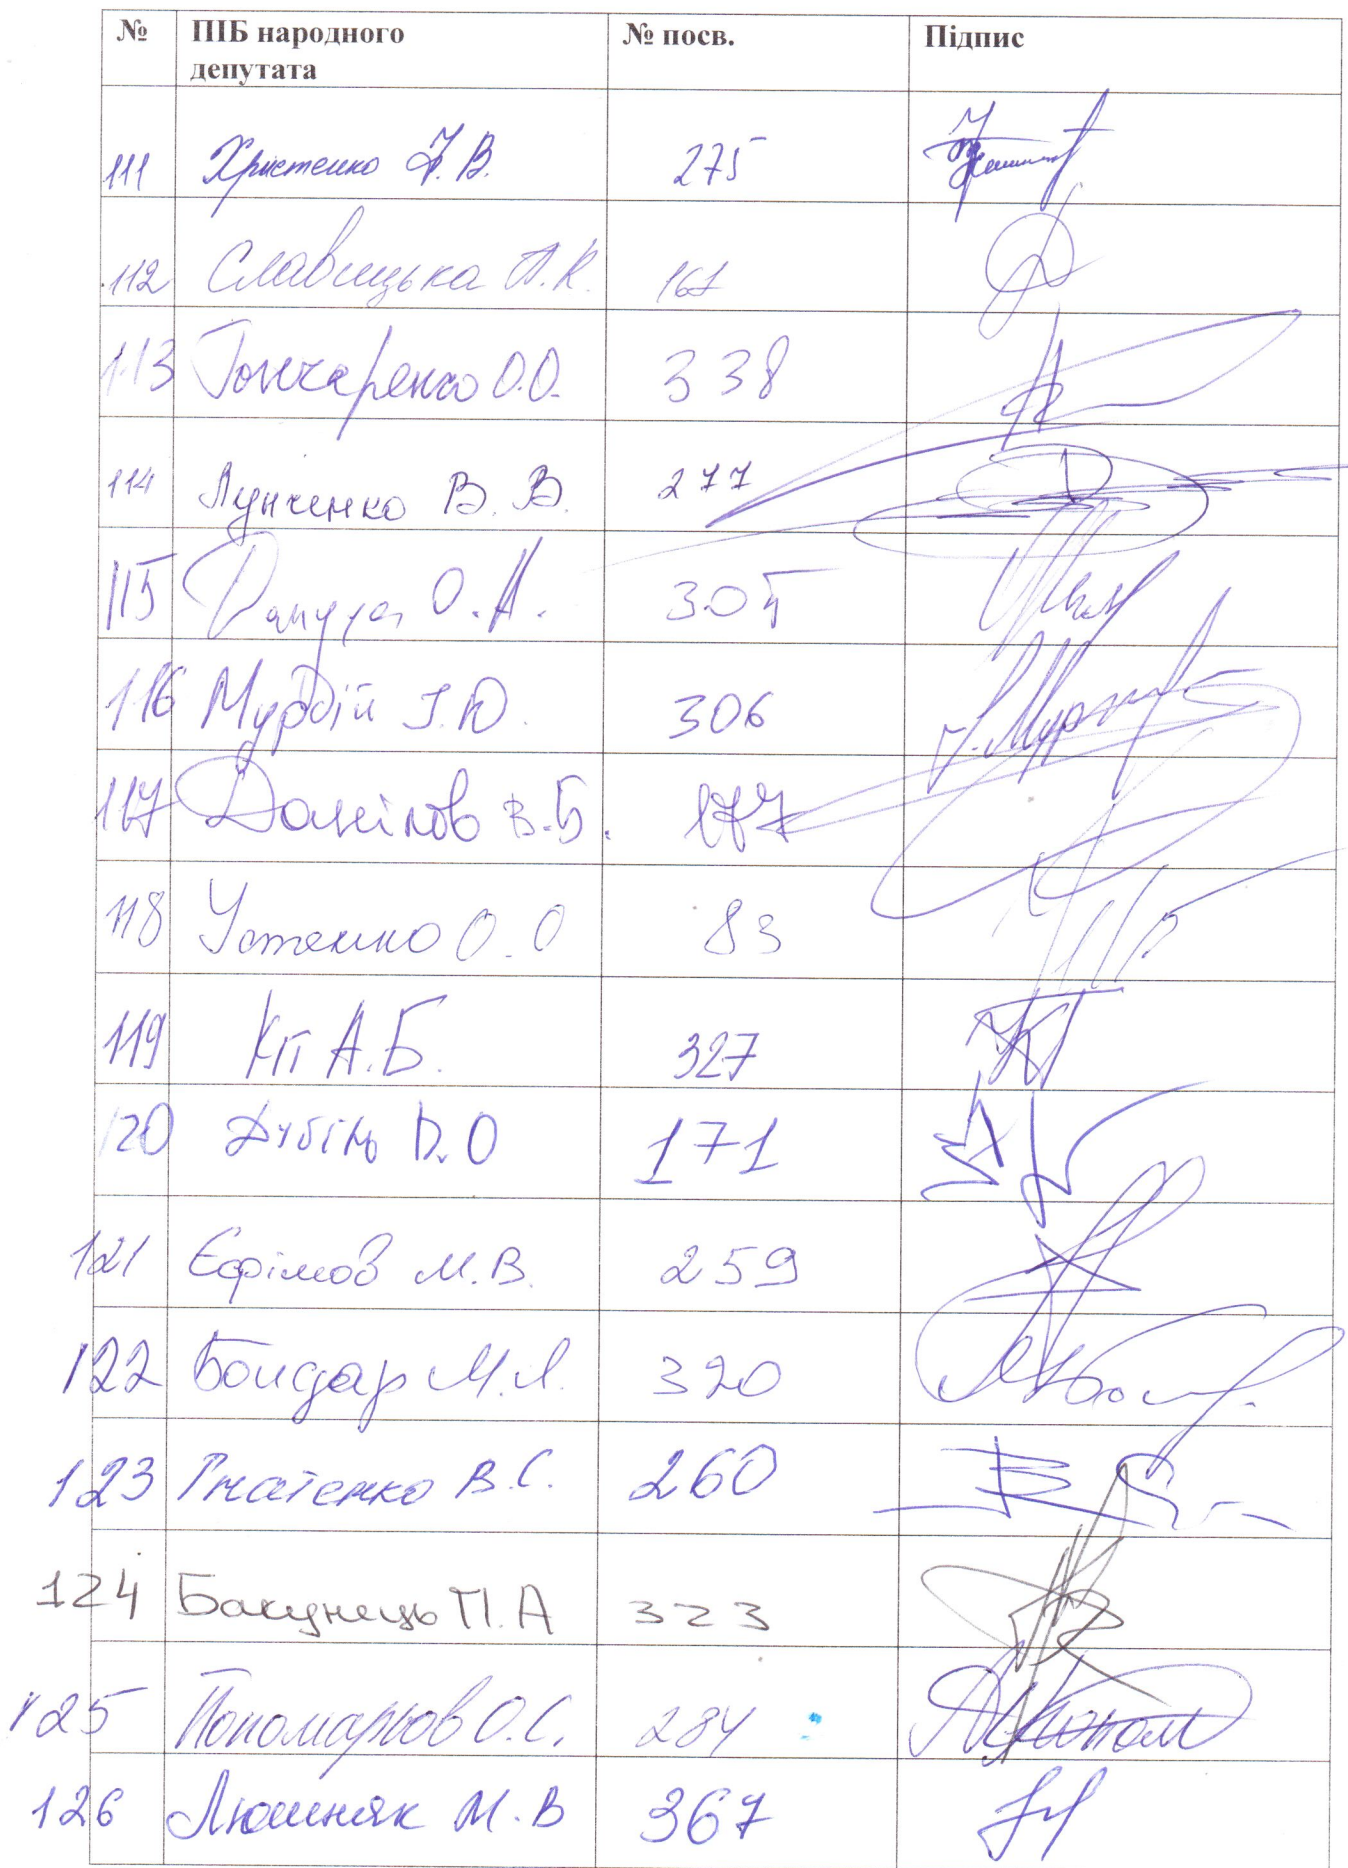 № ПІБ народного депутата № посв. Підпис
111 Христенко Ф.В. 275
112 Славицька А.К. 167
113 Гончаренко О.О. 338
114 Лунченко В.В. 277
115 О.А.
116 Мурдій І.Ю. 306
117 Данілов В.Б. 177
118 Устенко О.О 83
119 Кіт А.Б. 327
120 Дубіль В.О 171
121 Єфімов М.В. 259
122 Бондар М.Л. 320
123 Гнатенко В.С. 260
124 Бакунець П.А 323
125 Пономарьов О.С. 284
126 Люшняк М.В 367